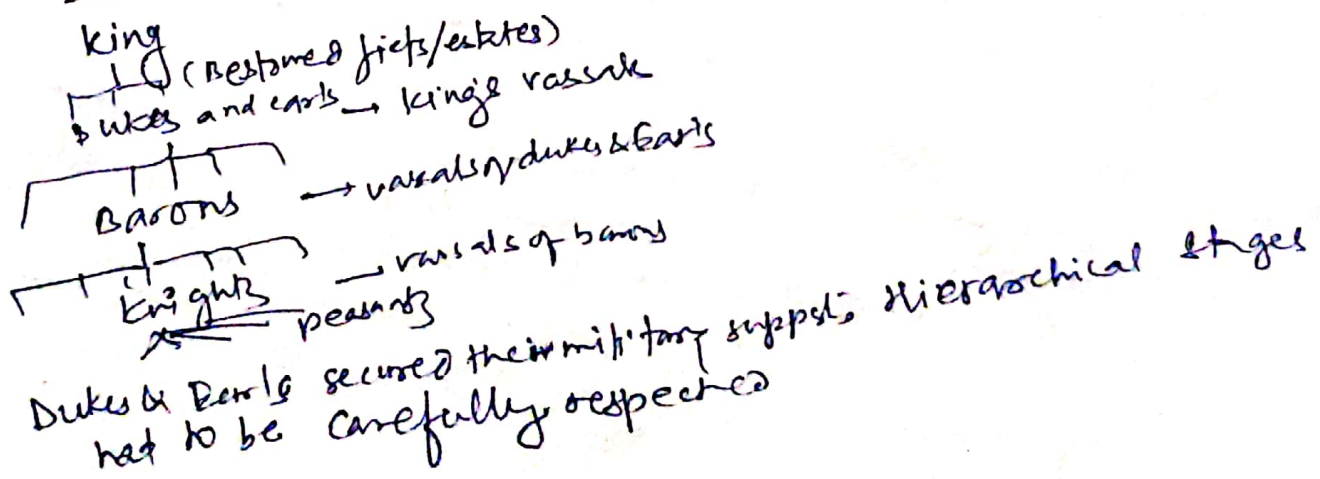 King
(Bestowed fiefs/estates)
Dukes and earls → King's vassals
Barons → vassals of dukes & Earls
Knights → vassals of barons
peasants
Dukes & Earls secured their military support; Hierarchical stages
had to be carefully respected